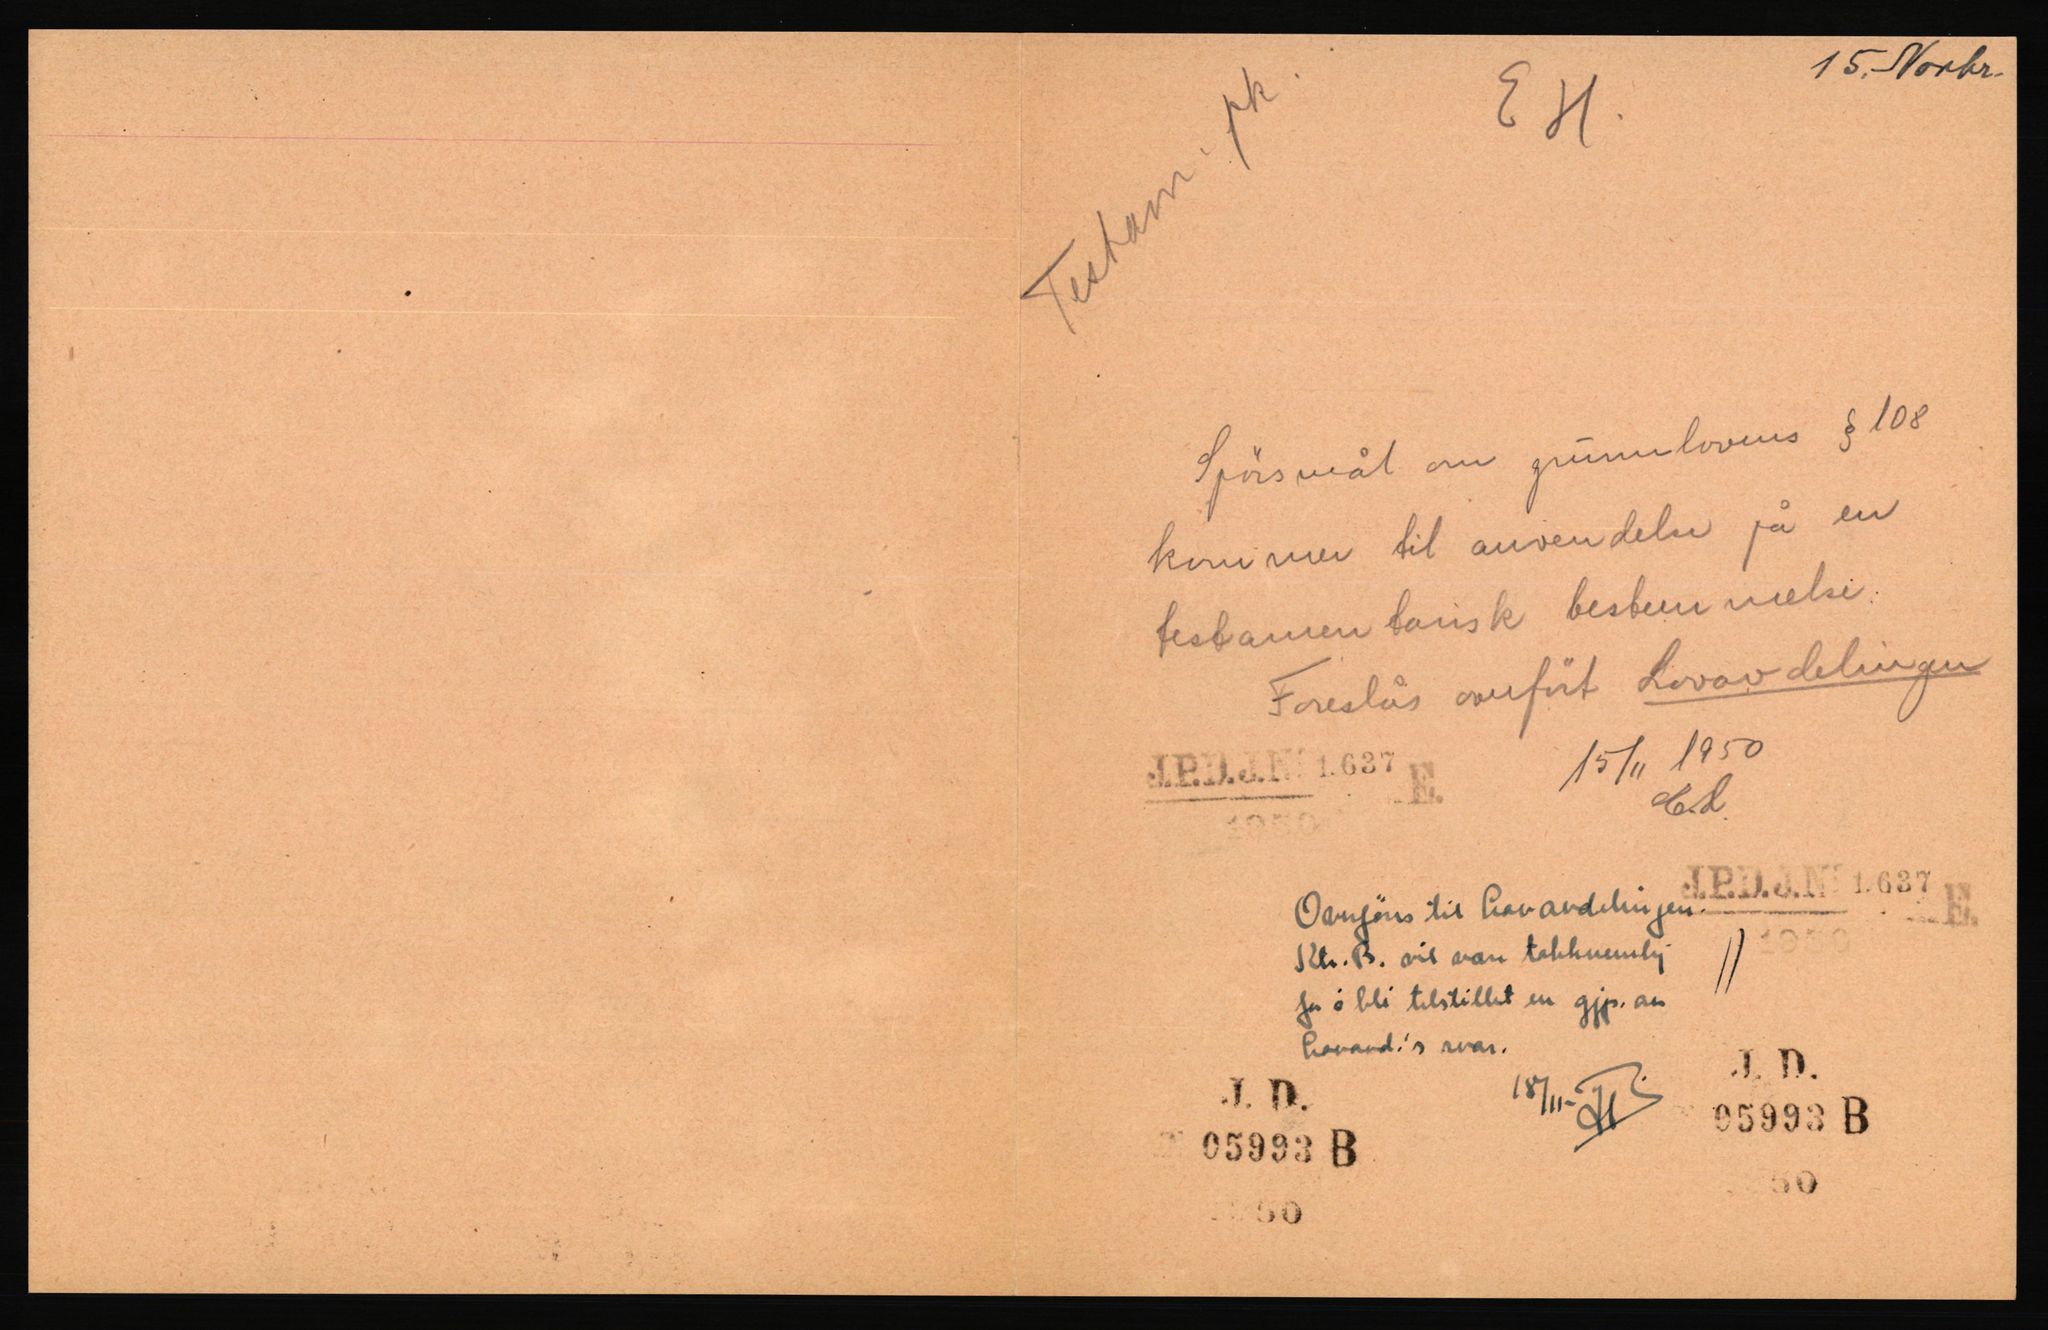 15. Novbr.
E H.
Testam. pk.
Spörsmål om grunnlovens § 108
kommer til anvendelse på en
testamentarisk bestemmelse.
Foreslås overfört Lovavdelingen
15/11 1950
E.L.
J.P.D.J.Nº 1.637 E.
1950
J.P.D.J.Nº 1.637 E.
1950
Overföres til Lovavdelingen.
Ktr. B. vil være takknemlig
for å bli tilstillet en gjp. av
Lovavd.'s svar.
18/11-
J. D.
05993 B
50
J. D.
05993 B
50